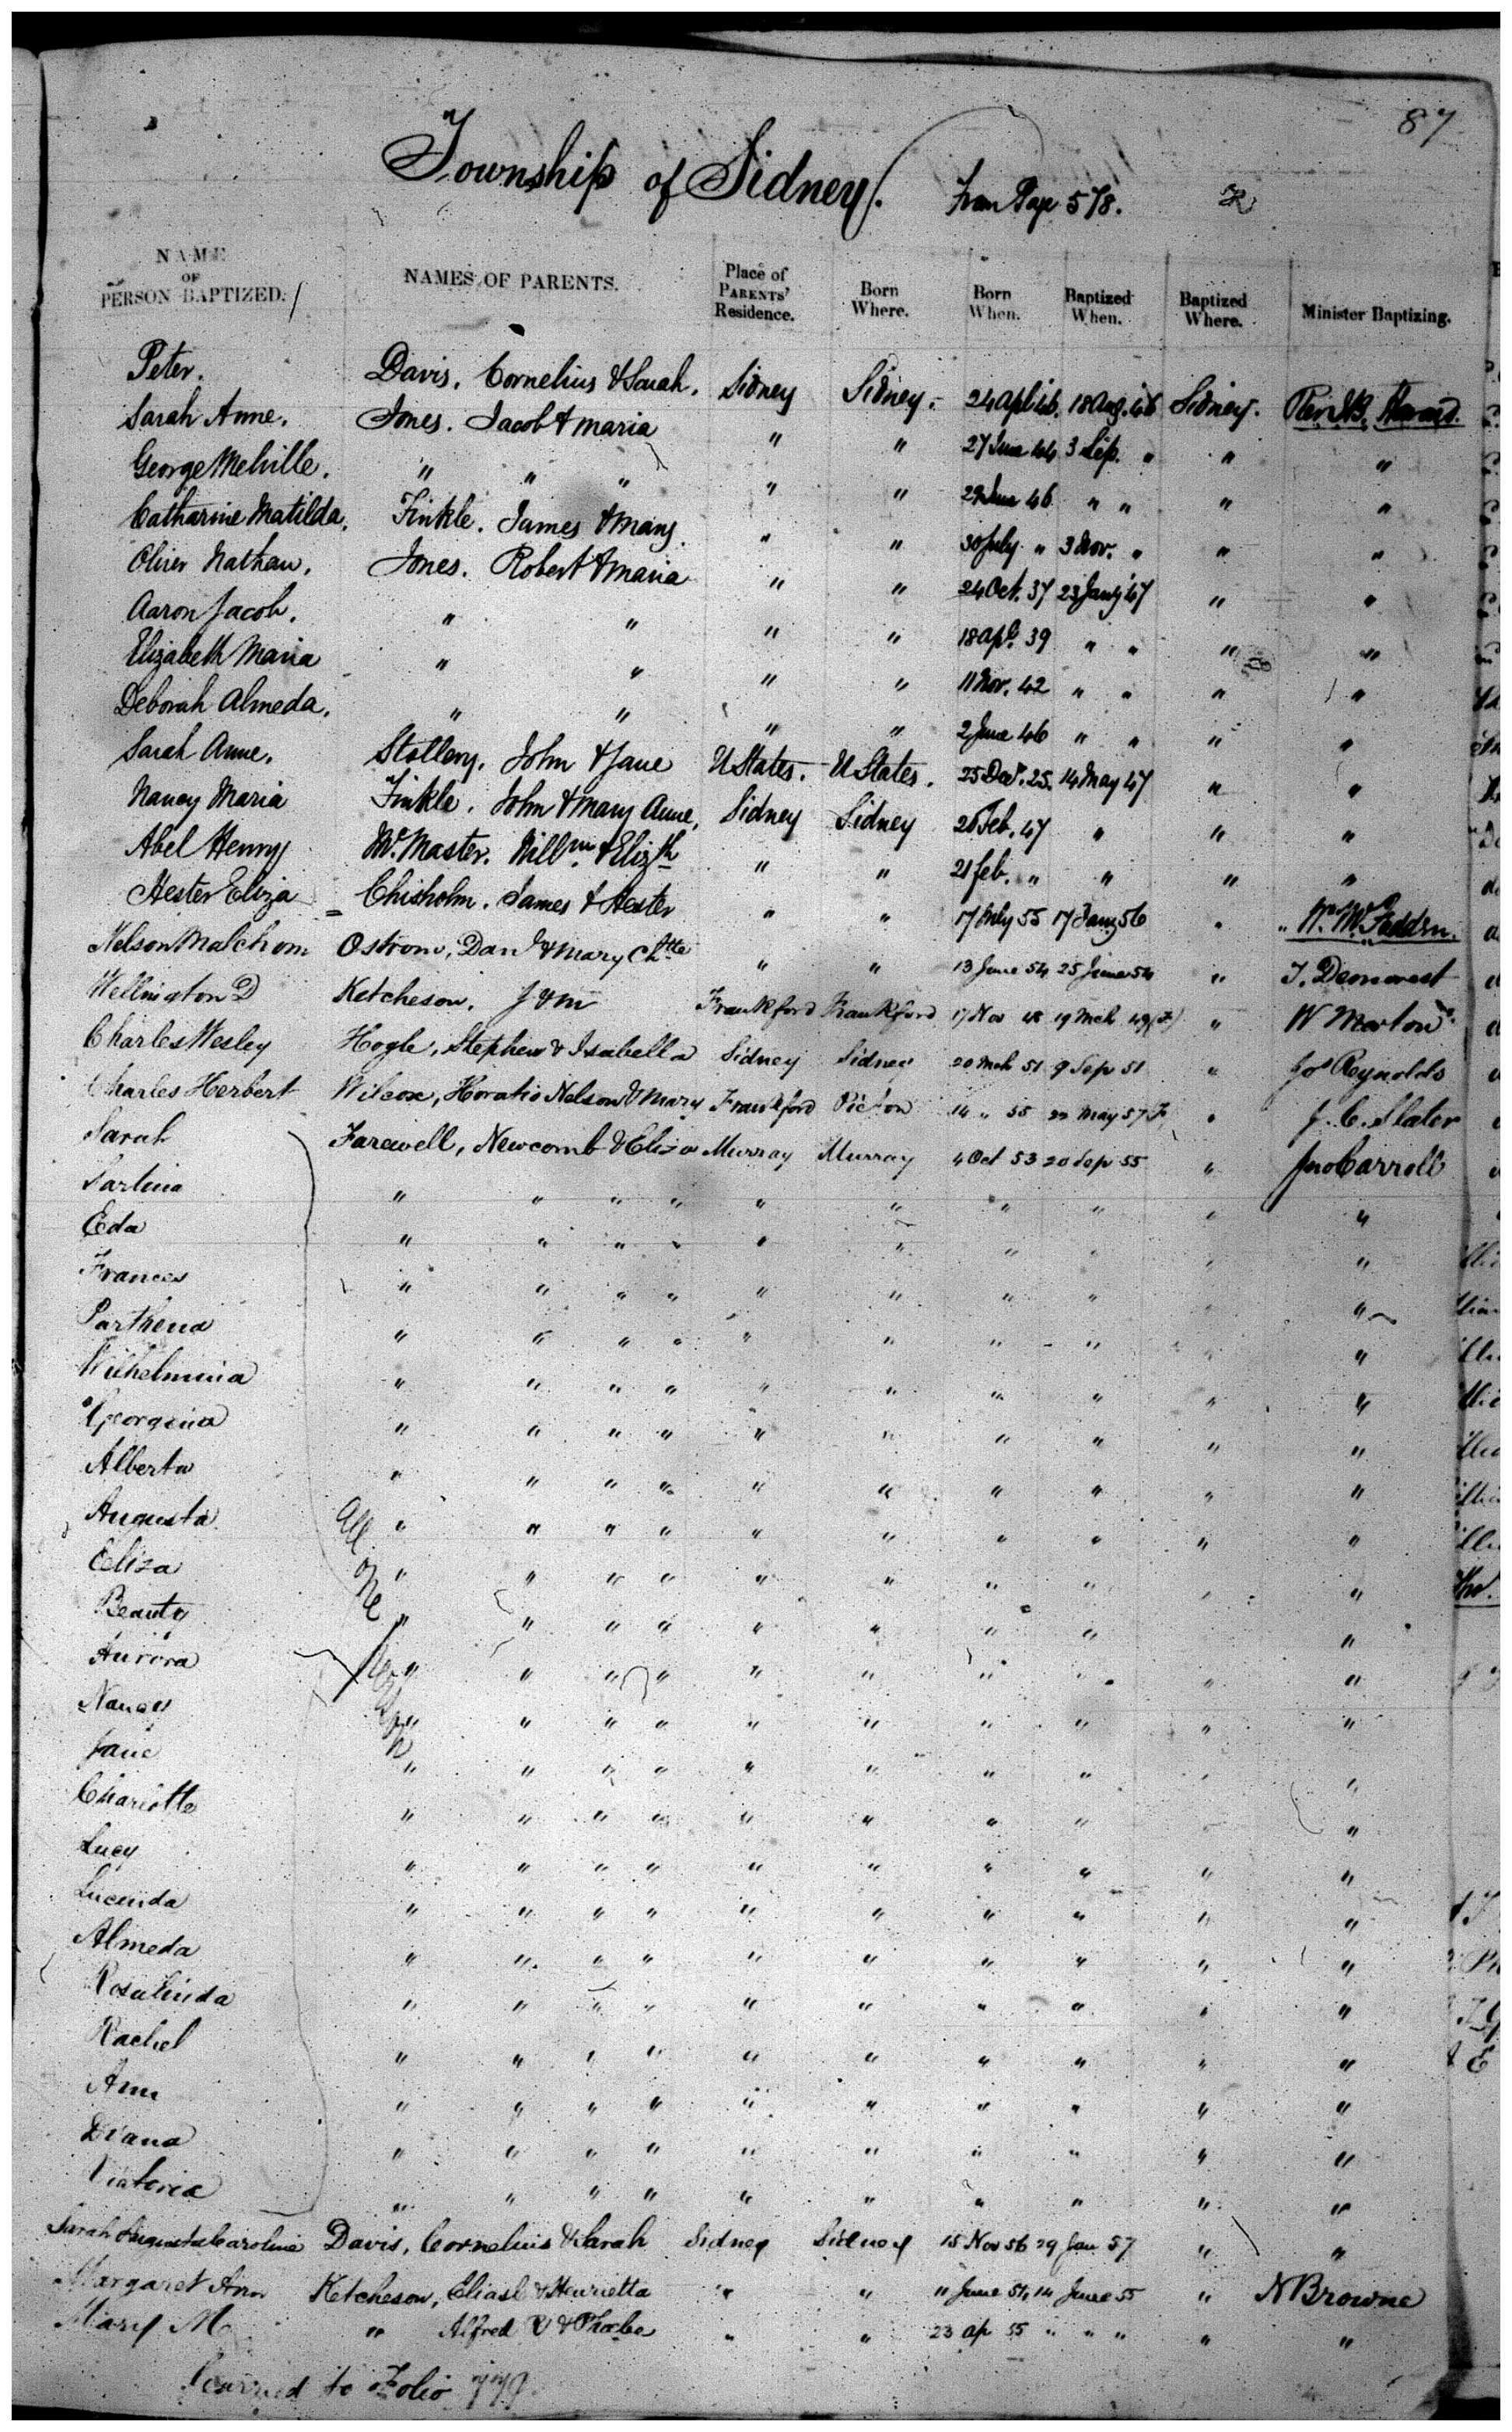 87
Township of Sidney. From Page 578.
NAME OF PERSON BAPTIZED. NAMES OF PARENTS. Place of PARENTS' Residence. Born Where. Born When. Baptized When. Baptized Where. Minister Baptizing.
Peter. Davis, Cornelius & Sarah. Sidney Sidney. 24 Apl 46. 18 Aug. 46 Sidney.
Sarah Anne. Jones. Jacob & Maria " " 27 June 44 3 Sep. " " "
George Melville. " " " " " 29 June 46 " " " "
Catharine Matilda. Finkle. James & Mary. " " 30 July " 3 Nov. " " "
Oliver Nathan. Jones. Robert & Maria " " 24 Oct. 37 23 Jany 47 " "
Aaron Jacob. " " " " 18 Apl. 39 " " " "
Elizabeth Maria " " " " 11 Nov. 42 " " " "
Deborah Almeda. " " " " 2 June 46 " " " "
Sarah Anne. Stollery. John & Jane U States. U States. 25 Dec. 25. 14 May 47 " "
Nancy Maria Finkle. John & Mary Anne. Sidney Sidney 26 Feb. 47 " " "
Abel Henry McMaster. Willm. & Elizth " " 21 Feb. " " " "
Hester Eliza Chisholm. James & Hester " " 17 July 55 17 Jany 56 " " W. McFadden.
Nelson Malchom Ostrom, Danl & Mary Chtte " " 13 June 54 25 June 54 " T. Demorest
Wellington D Ketcheson, J & M Frankford Frankford 17 Nov 48 19 Mch 49 (F) " W Morton
Charles Wesley Hogle, Stephen & Isabella Sidney Sidney 20 Mch 51 9 Sep 51 " Jos Reynolds
Charles Herbert Wilcox, Horatio Nelson & Mary Frankford Picton 14 " 55 22 May 57 F " J. C. Slater
Sarah Farewell, Newcomb & Eliza Murray Murray 4 Oct 53 20 Sep 55 " Jno Carroll
Sarlina " " " " " " " " " "
Eda " " " " " " " " " "
Frances " " " " " " " " "
Parthena " " " " " " " " "
Wilhelmina " " " " " " " " " "
Georgina " " " " " " " " " "
Alberta " " " " " " " " " "
Augusta All " " " " " " " " " "
Eliza one " " " " " " " " " "
Beauty " " " " " " " " "
Aurora " " " " " " " " " "
Nancy " " " " " " " " " "
Jane " " " " " " " " " "
Charlotte " " " " " " " " " "
Lucy " " " " " " " " " "
Lucinda " " " " " " " " " "
Almeda " " " " " " " " " "
Rosalinda " " " " " " " " " "
Rachel " " " " " " " " " "
Ann " " " " " " " " " "
Diana " " " " " " " " " "
Victoria " " " " " " " " " "
Sarah Augusta Caroline Davis, Cornelius & Sarah Sidney Sidney 15 Nov 56 29 Jan 57 " "
Margaret Ann Ketcheson, Elias & Henrietta " " " June 54 14 June 55 " N Browne
Mary M " Alfred & Phoebe " " 23 Ap 55 " " " " "
Carried to Folio